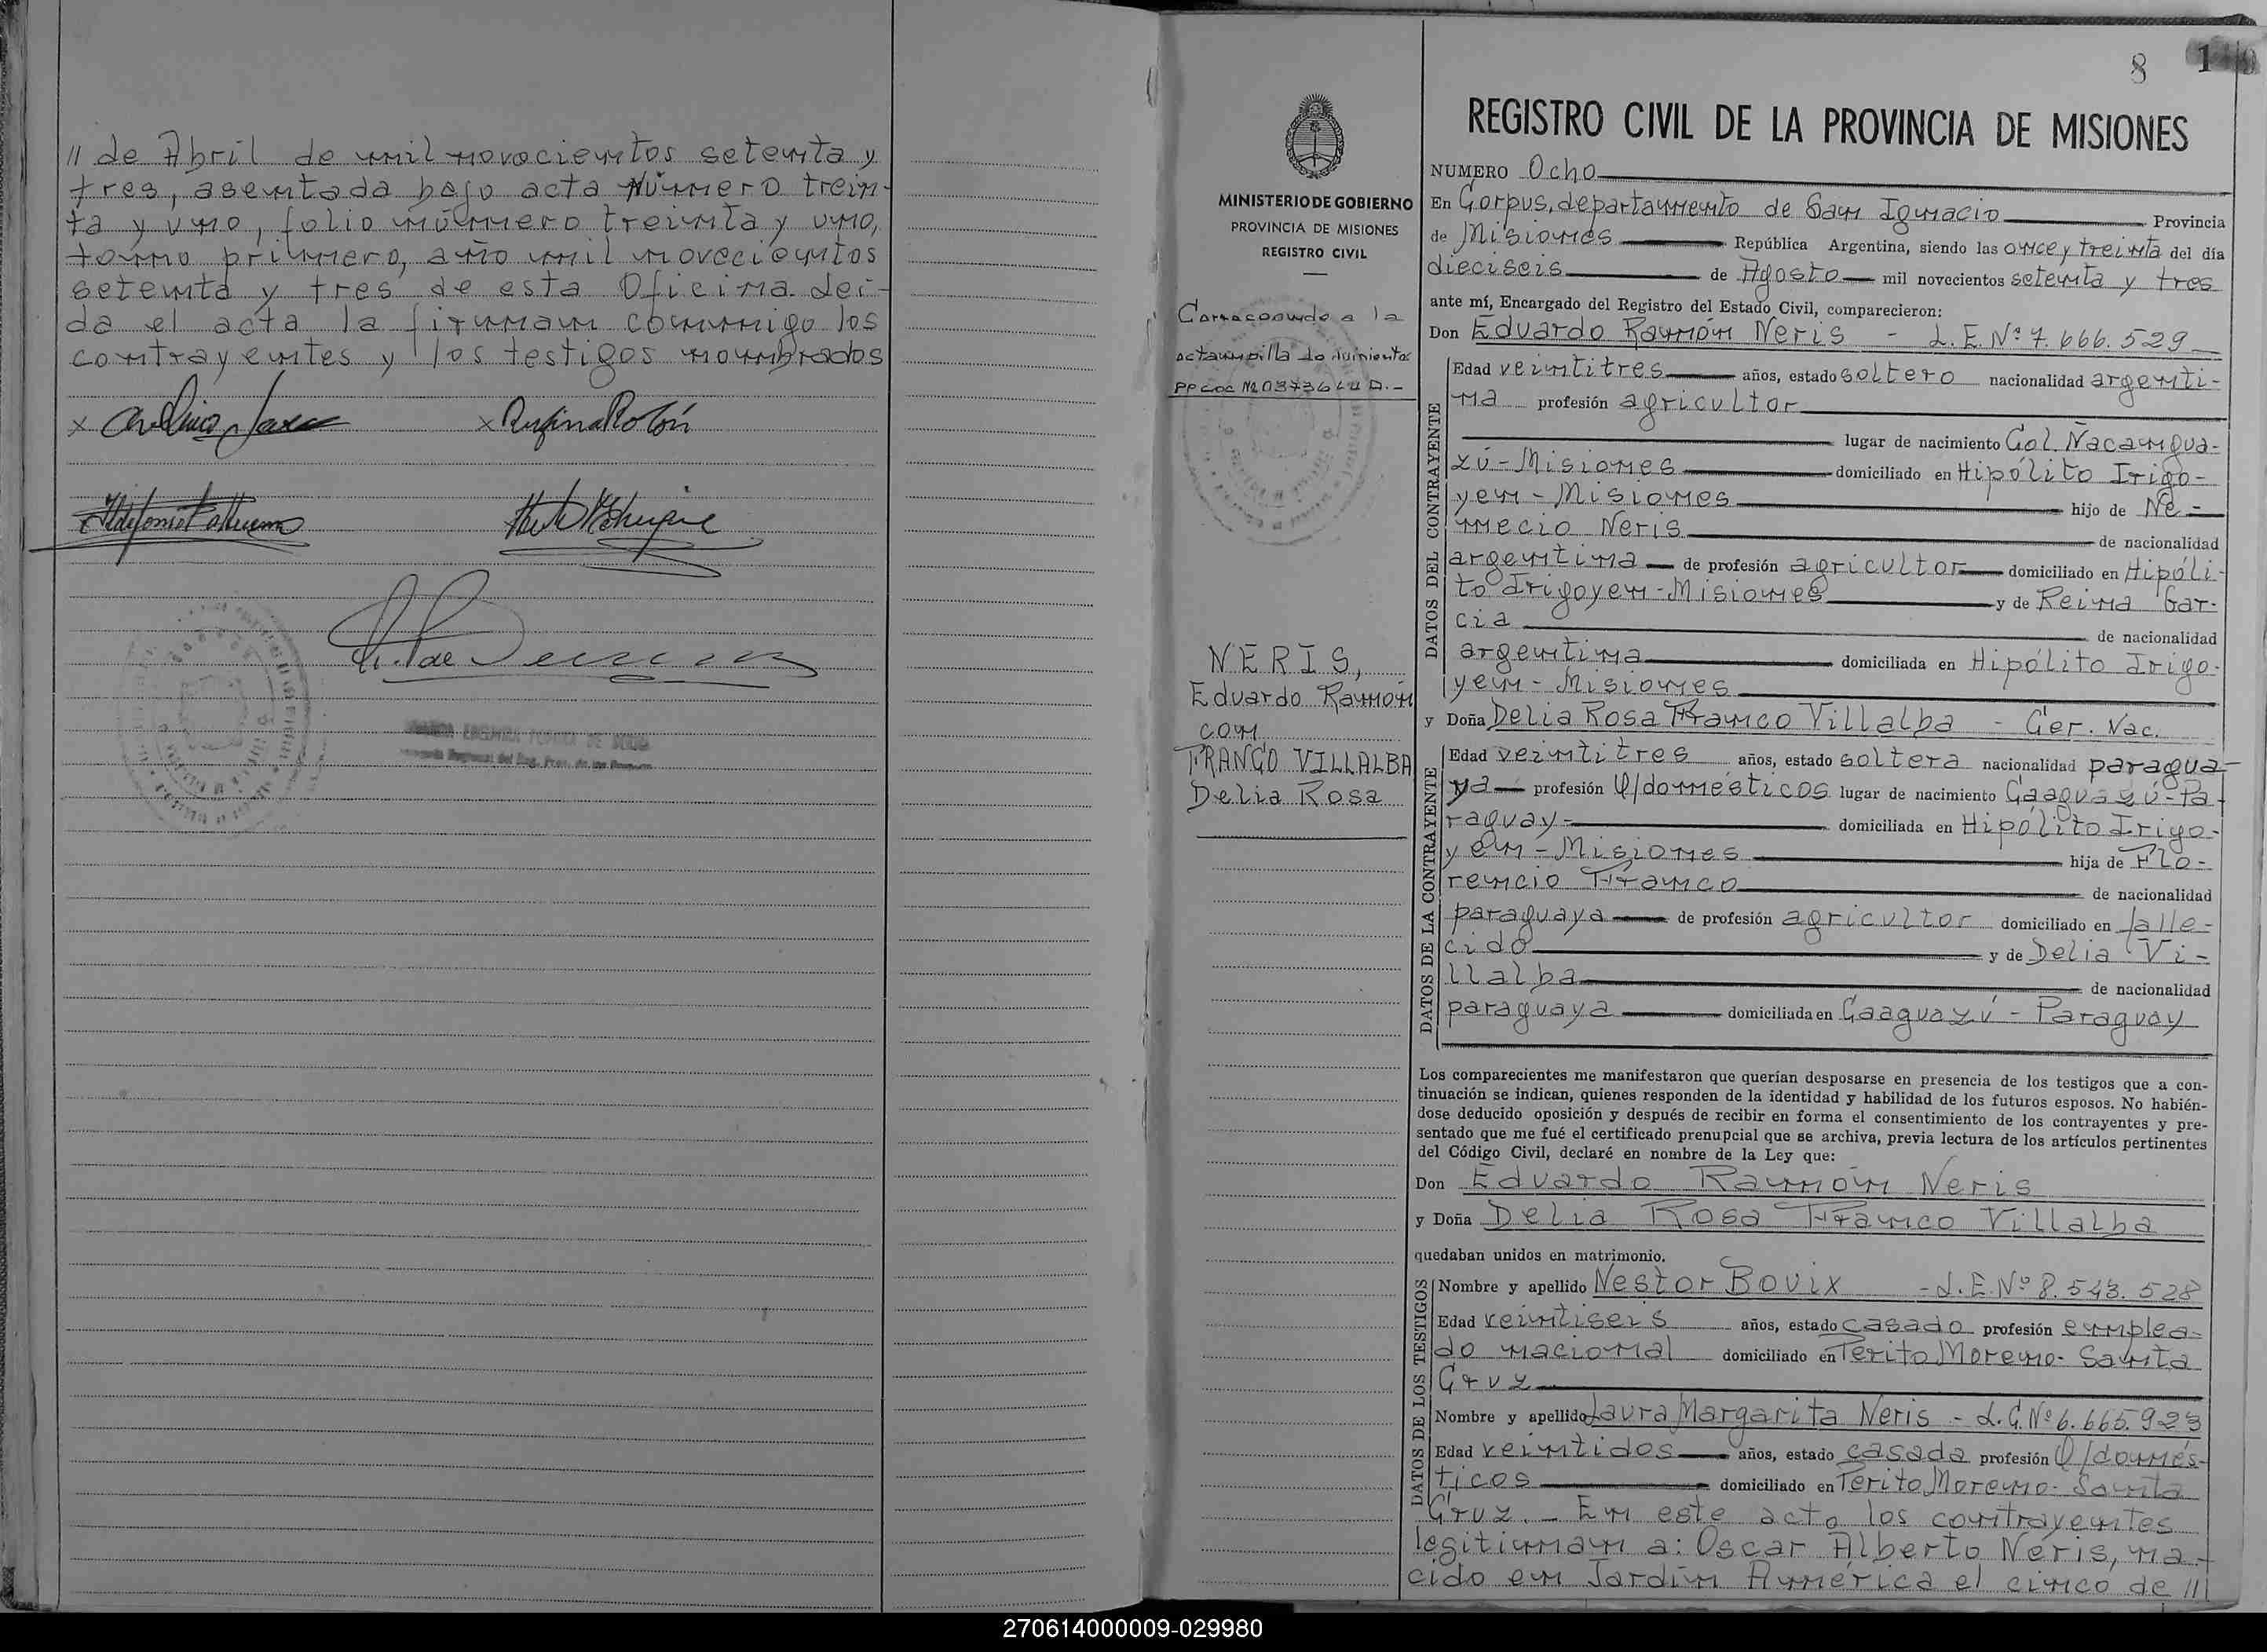 // de Abril de mil novocientos setenta y
tres, asentada bajo acta número trein-
ta y uno, folio número treinta y uno,
tomo primero, año mil novecientos
setenta y tres de esta Oficina. Leí-
da el acta la firman conmigo los
contrayentes y los testigos nombrados
x
x Rufina Rolón
8
REGISTRO CIVIL DE LA PROVINCIA DE MISIONES
MINISTERIO DE GOBIERNO
PROVINCIA DE MISIONES
REGISTRO CIVIL
NUMERO Ocho
En Corpus, departamento de San Ignacio Provincia
de Misiones República Argentina, siendo las once y treinta del día
dieciseis de Agosto mil novecientos setenta y tres
ante mí, Encargado del Registro del Estado Civil, comparecieron:
Don Eduardo Ramón Neris - L.E.Nº 7.666.529
DATOS DEL CONTRAYENTE
Edad veintitres años, estado soltero nacionalidad argenti-
na profesión agricultor
lugar de nacimiento Col. Ñacangua-
zú - Misiones domiciliado en Hipólito Irigo-
yen - Misiones hijo de Ne-
mecio Neris de nacionalidad
argentina de profesión agricultor domiciliado en Hipóli-
to Irigoyen - Misiones y de Reina Gar-
cia de nacionalidad
argentina domiciliada en Hipólito Irigo-
yen - Misiones
y Doña Delia Rosa Franco Villalba - Cer. Nac.
DATOS DE LA CONTRAYENTE
Edad veintitres años, estado soltera nacionalidad paragua-
ya profesión Q/domésticos lugar de nacimiento Caaguazú - Pa-
raguay - domiciliada en Hipólito Irigo-
yen - Misiones hija de Flo-
rencio Franco de nacionalidad
paraguaya de profesión agricultor domiciliado en falle-
cido y de Delia Vi-
llalba de nacionalidad
paraguaya domiciliada en Caaguazú - Paraguay
Corresponde a la
NERIS,
Eduardo Ramón
con
FRANCO VILLALBA
Delia Rosa
Los comparecientes me manifestaron que querían desposarse en presencia de los testigos que a con-
tinuación se indican, quienes responden de la identidad y habilidad de los futuros esposos. No habién-
dose deducido oposición y después de recibir en forma el consentimiento de los contrayentes y pre-
sentado que me fué el certificado prenupcial que se archiva, previa lectura de los artículos pertinentes
del Código Civil, declaré en nombre de la Ley que:
Don Eduardo Ramón Neris
y Doña Delia Rosa Franco Villalba
quedaban unidos en matrimonio.
DATOS DE LOS TESTIGOS
Nombre y apellido Nestor Bovix - L.E.Nº 8.543.528
Edad veintiseis años, estado casado profesión emplea-
do nacional domiciliado en Perito Moreno - Santa
Cruz
Nombre y apellido Laura Margarita Neris - L.C.Nº 6.665.923
Edad veintidos años, estado casada profesión Q/domés-
ticos domiciliado en Perito Moreno - Santa
Cruz. - En este acto los contrayentes
legitiman a: Oscar Alberto Neris, na-
cido en Jardín América el cinco de ///
270614000009-029980